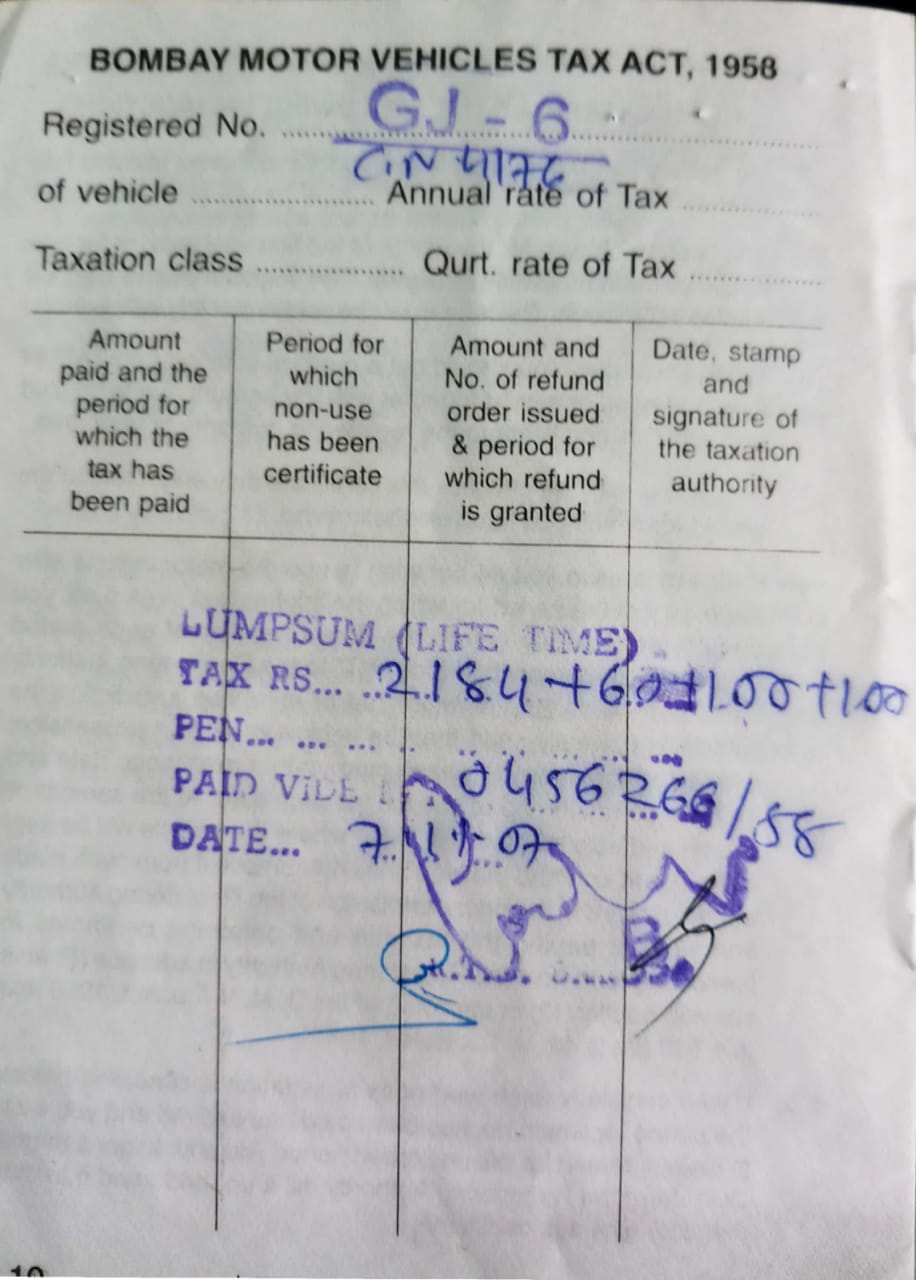 BOMBAY MOTOR VEHICLES TAX ACT, 1958
Registered No. .......... GJ - 6
CN 4176
of vehicle .......... Annual rate of Tax ..........
Taxation class .......... Qurt. rate of Tax ..........
Amount paid and the period for which the tax has been paid
Period for which non-use has been certificate
Amount and No. of refund order issued & period for which refund is granted
Date, stamp and signature of the taxation authority
LUMPSUM (LIFE TIME)
TAX RS... 2184+60+100+100
PEN... ... ...
PAID VIDE 0456266/88
DATE... 7.11.07
10